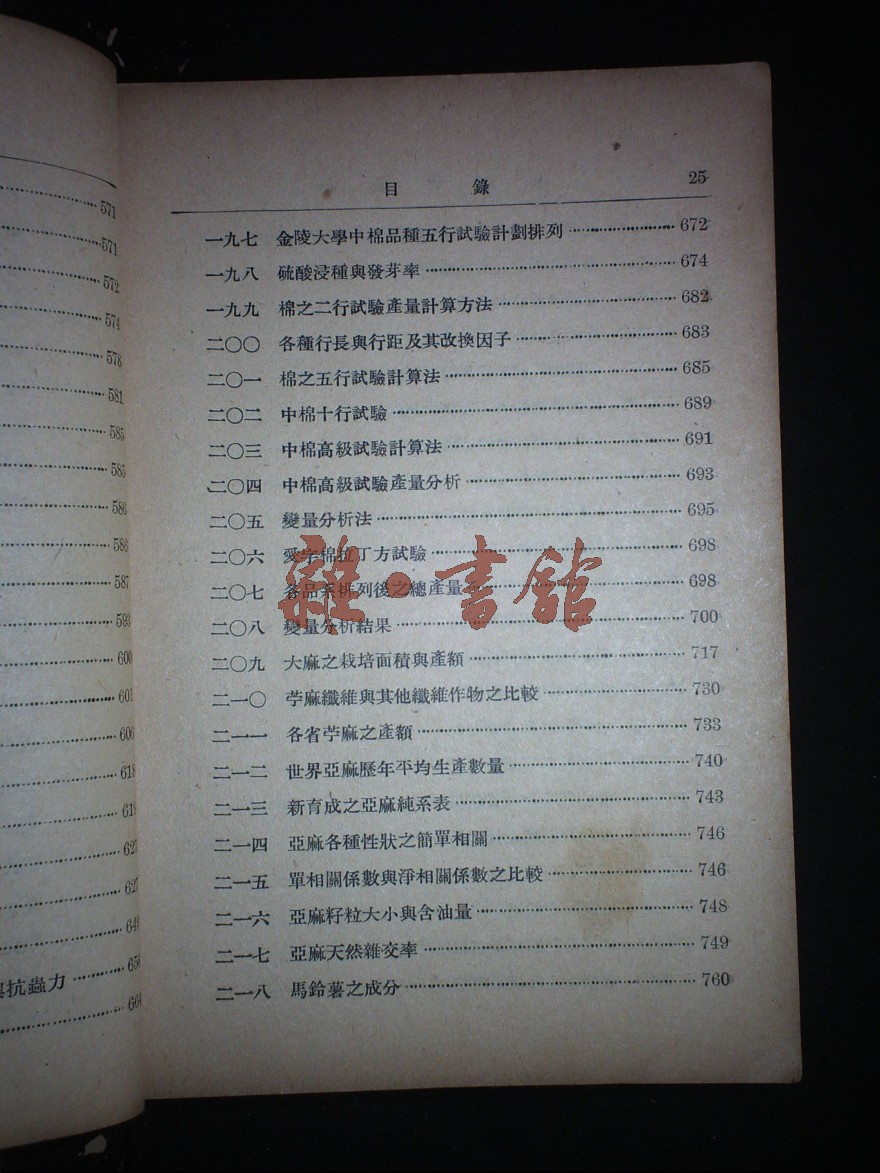 571
571
572
574
578
581
585
585
586
587
593
600
601
606
618
618
627
627
抗蟲力 656
目錄 25
一九七 金陵大學中棉品種五行試驗計劃排列 672
一九八 硫酸浸種與發芽率 674
一九九 棉之二行試驗產量計算方法 682
二〇〇 各種行長與行距及其改換因子 683
二〇一 棉之五行試驗計算法 685
二〇二 中棉十行試驗 689
二〇三 中棉高級試驗計算法 691
二〇四 中棉高級試驗產量分析 693
二〇五 變量分析法 695
二〇六 愛字棉拉丁方試驗 698
二〇七 各品系排列後之總產量 698
二〇八 變量分析結果 700
二〇九 大麻之栽培面積與產額 717
二一〇 苧麻纖維與其他纖維作物之比較 730
二一一 各省苧麻之產額 733
二一二 世界亞麻歷年平均生產數量 740
二一三 新育成之亞麻純系表 743
二一四 亞麻各種性狀之簡單相關 746
二一五 單相關係數與淨相關係數之比較 746
二一六 亞麻籽粒大小與含油量 748
二一七 亞麻天然雜交率 749
二一八 馬鈴薯之成分 760
雜·書館